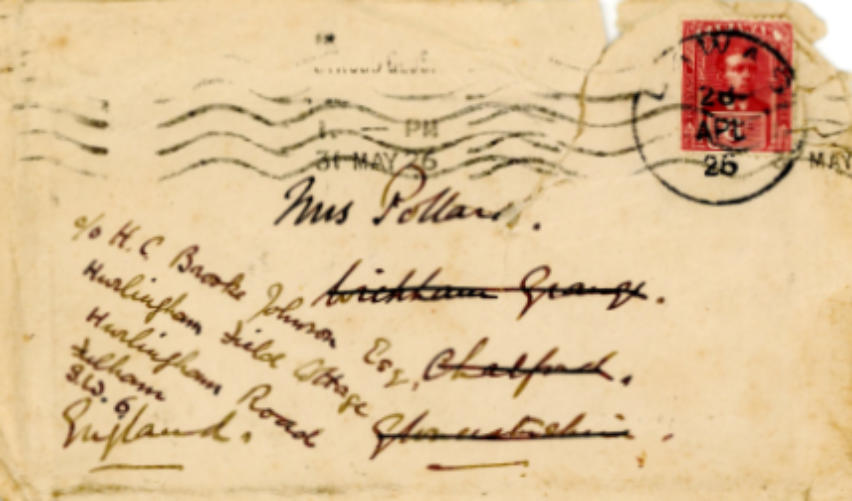 1. — PM
31 MAY 26
SARAWAK
26
APL
26
MAY
Mrs Pollard.
Wickham Grange.
Chalford.
Gloucestershire.
c/o H. C. Brooke Johnson Esq.
Hurlingham Field Cottage
Hurlingham Road
Fulham
S.W. 6.
England.